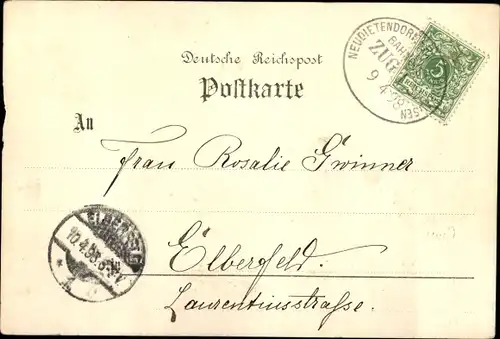 NEUDIETENDORF
BAH
ZUG
9 4 98
SEN
5
Deutsche Reichspost
Postkarte
An
Frau Rosalie Gwinner
ELBERFELD
10.4.98.
Elberfeld.
Laurentiusstraße.